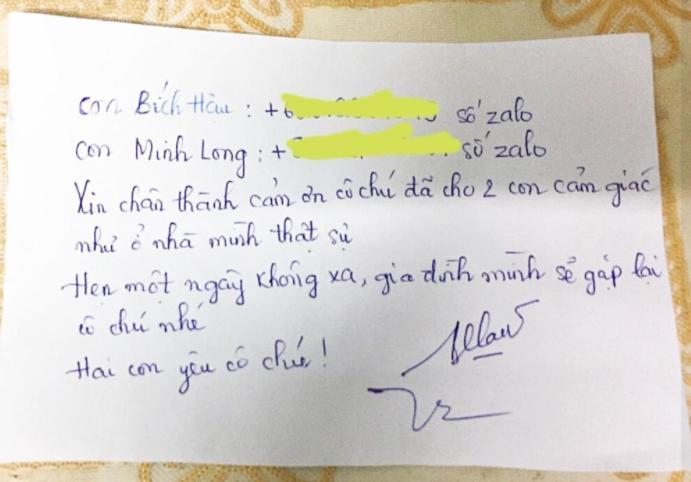 con Bích Hâu : + số zalo
con Minh Long : + số zalo
Xin chân thành cảm ơn cô chú đã cho 2 con cảm giác
như ở nhà mình thật sự
Hẹn một ngày không xa, gia đình mình sẽ gặp lại
cô chú nhé
Hai con yêu cô chú !